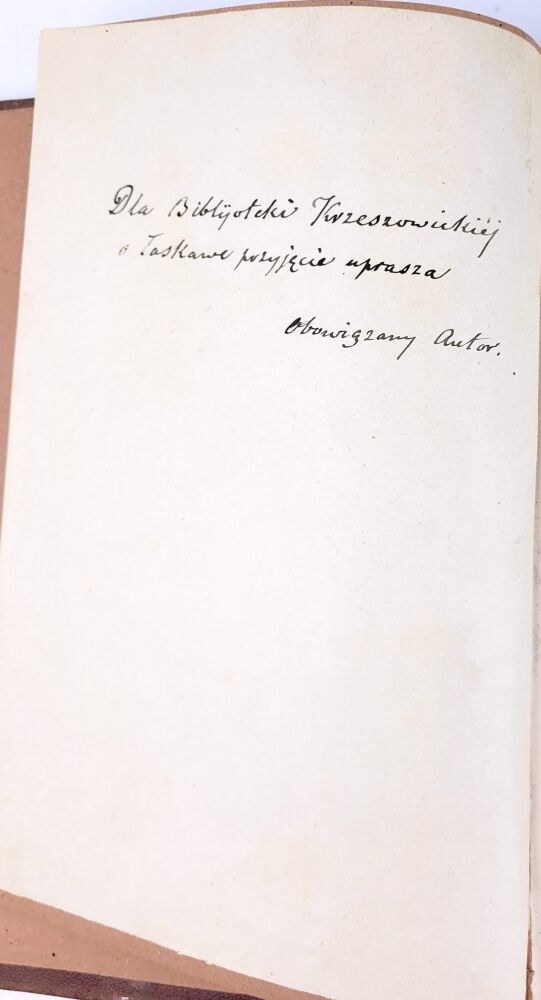 Dla Biblijoteki Krzeszowickiéj
o łaskawe przyjęcie uprasza
Obowiązany Autor.